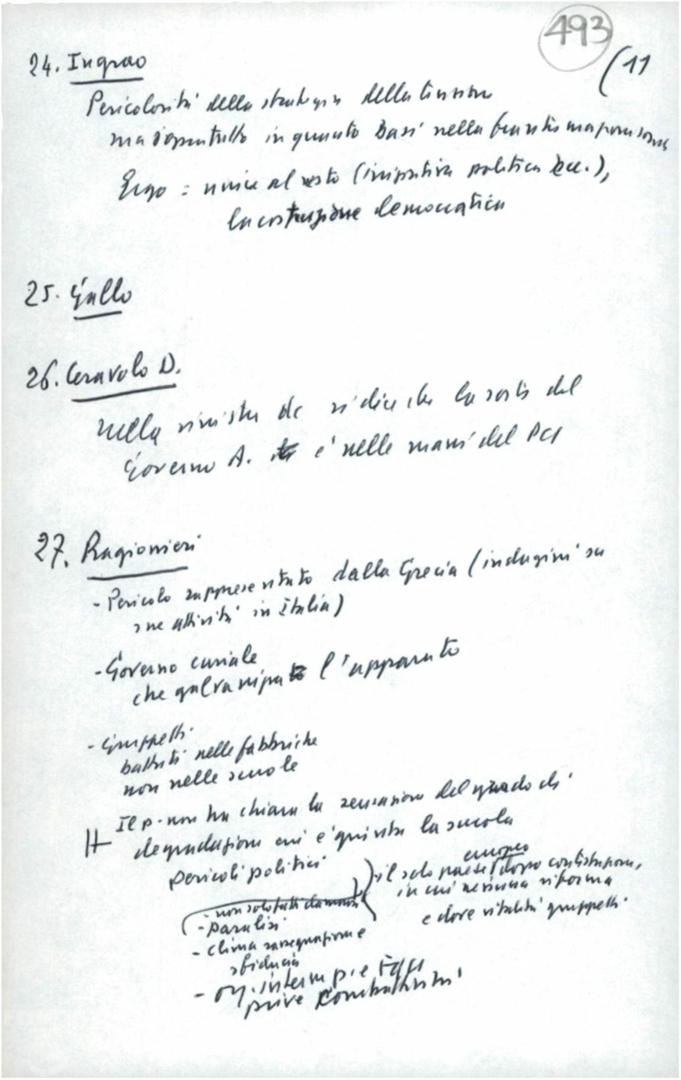 493
(11
24. Ingrao
Pericolosità della strategia della tensione
ma soprattutto in quanto basi nella
Ergo: unire al resto (iniziativa politica ecc.),
la costruzione democratica
25. Gallo
26. Ceravolo D.
nella rivista dc si dice che la sorte del
Governo A. è nelle mani del PCI
27. Ragionieri
- Pericolo rappresentato dalla Grecia (indagini su
sue attività in Italia)
- Governo curiale
che galvanizza l'apparato
- Gruppetti
battuti nelle fabbriche
non nelle scuole
Il p. non ha chiara la sensazione del grado di
degradazione cui è giunta la scuola
pericoli politici
europeo
il solo paese dopo contestazione,
in cui nessuna riforma
e dove vitalità gruppetti
- non solo fatti
- paralisi
- clima rassegnazione e
sfiducia
- org. interm p. e FGCI
prive combattività